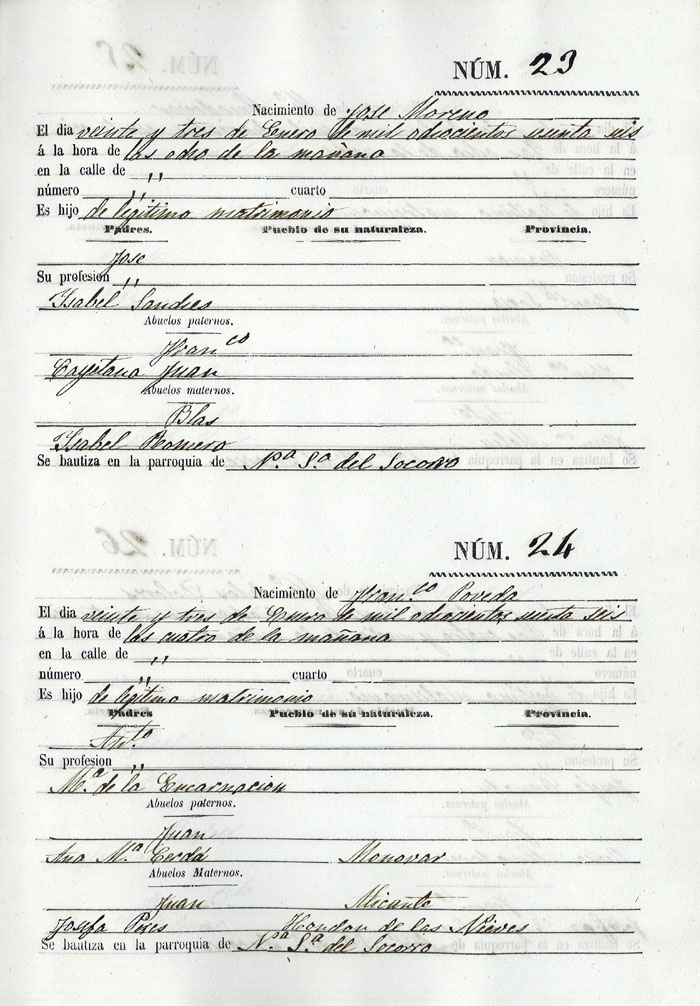 NÚM. 23
Nacimiento de Jose Moreno
El dia veinte y tres de Enero de mil ochocientos sesenta seis
á la hora de las ocho de la mañana
en la calle de „
número „ cuarto
Es hijo de legitimo matrimonio
Padres. Pueblo de su naturaleza. Provincia.
Jose
Su profesion „
Isabel
Abuelos paternos.
Fran.co
Cayetana Juan
Abuelos maternos.
Blas
Isabel Romero
Se bautiza en la parroquia de N.a S.a del Socorro
NÚM. 24
Nacimiento de Fran.co Poveda
El dia veinte y tres de Enero de mil ochocientos sesenta seis
á la hora de las cuatro de la mañana
en la calle de „
número „ cuarto
Es hijo de legitimo matrimonio
Padres Pueblo de su naturaleza. Provincia.
Ant.o
Su profesion „
M.a de la Encarnacion
Abuelos paternos.
Juan
Ana M.a Cerdá Monovar
Abuelos Maternos.
Juan Alicante
Josefa Hondon de las Nieves
Se bautiza en la parroquia de N.a S.a del Socorro